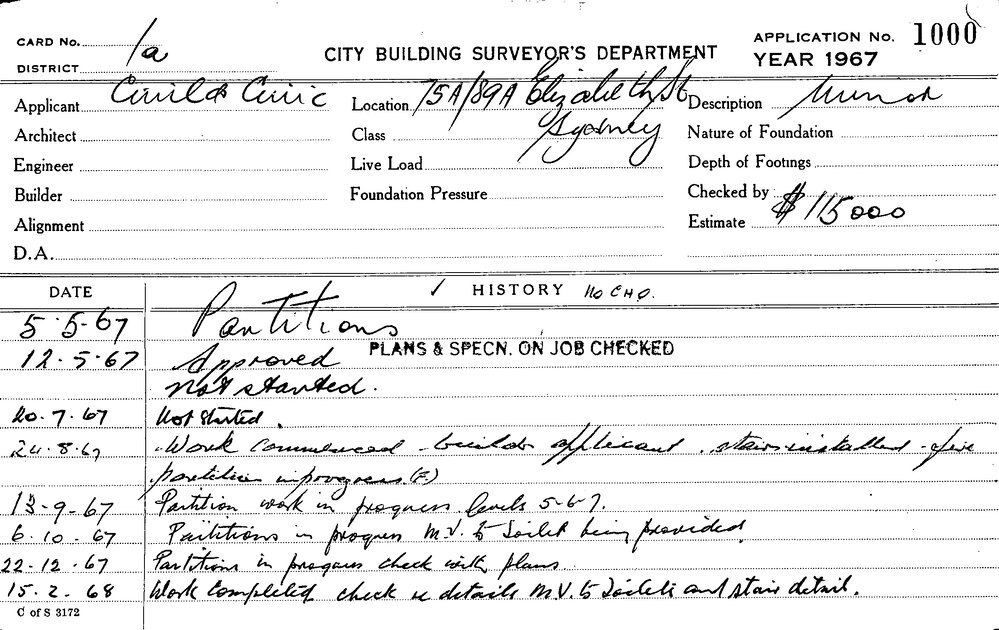 CARD No. 1a
DISTRICT
CITY BUILDING SURVEYOR'S DEPARTMENT
APPLICATION No. 1000
YEAR 1967
Applicant Civil & Civic
Location 75A/89A Elizabeth St Sydney
Description Minor
Architect
Class
Nature of Foundation
Engineer
Live Load
Depth of Footings
Builder
Foundation Pressure
Checked by
Alignment
Estimate $115000
D.A.
DATE
✓ HISTORY No CHQ.
5-5-67 Partitions
12-5-67 Approved PLANS & SPECN. ON JOB CHECKED
Not started.
20-7-67 Not Started.
24-8-67 Work commenced - builder applicant. stairs installed - fire
partition in progress (F.)
13-9-67 Partition work in progress levels 5-6-7.
6-10-67 Partitions in progress M.V. to Toilet being provided.
22-12-67 Partitions in progress check with plans.
15-2-68 Work completed check re details M.V. to Toilets and stair detail.
C of S 3172